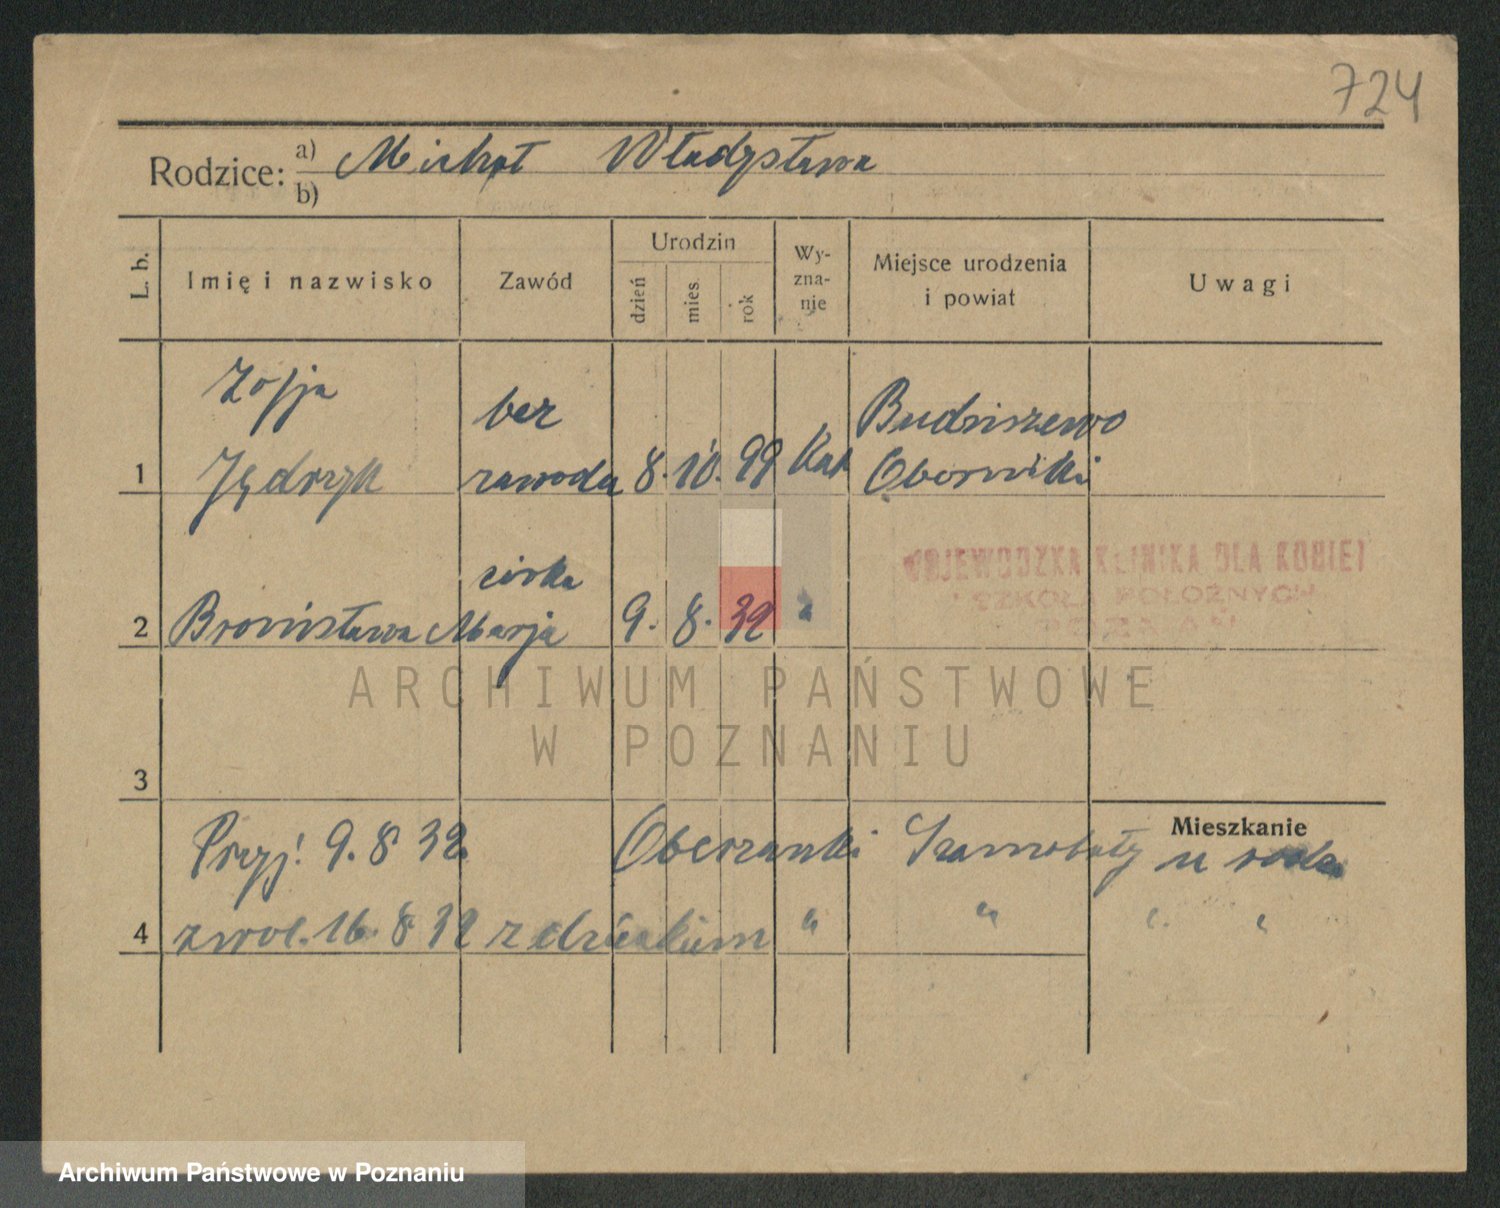 724
Rodzice: a) Michał Władysława
b)
L. b. Imię i nazwisko Zawód Urodzin dzień mies. rok Wy-zna-nie Miejsce urodzenia i powiat Uwagi
Zofja bez Budziszewo
1 Jędrzyk zawodu 8. 10. 99 Kat Oborniki
córka
2 Bronisława Marja 9. 8. 32 "
WOJEWÓDZKA KLINIKA DLA KOBIET
SZKOŁA POŁOŻNYCH
POZNAŃ
ARCHIWUM PAŃSTWOWE
W POZNANIU
3
Mieszkanie
Przyj. 9. 8 32 Oberzanki Szamotuły u
4 zwol. 16. 8 32 z dzieckiem " " " "
Archiwum Państwowe w Poznaniu